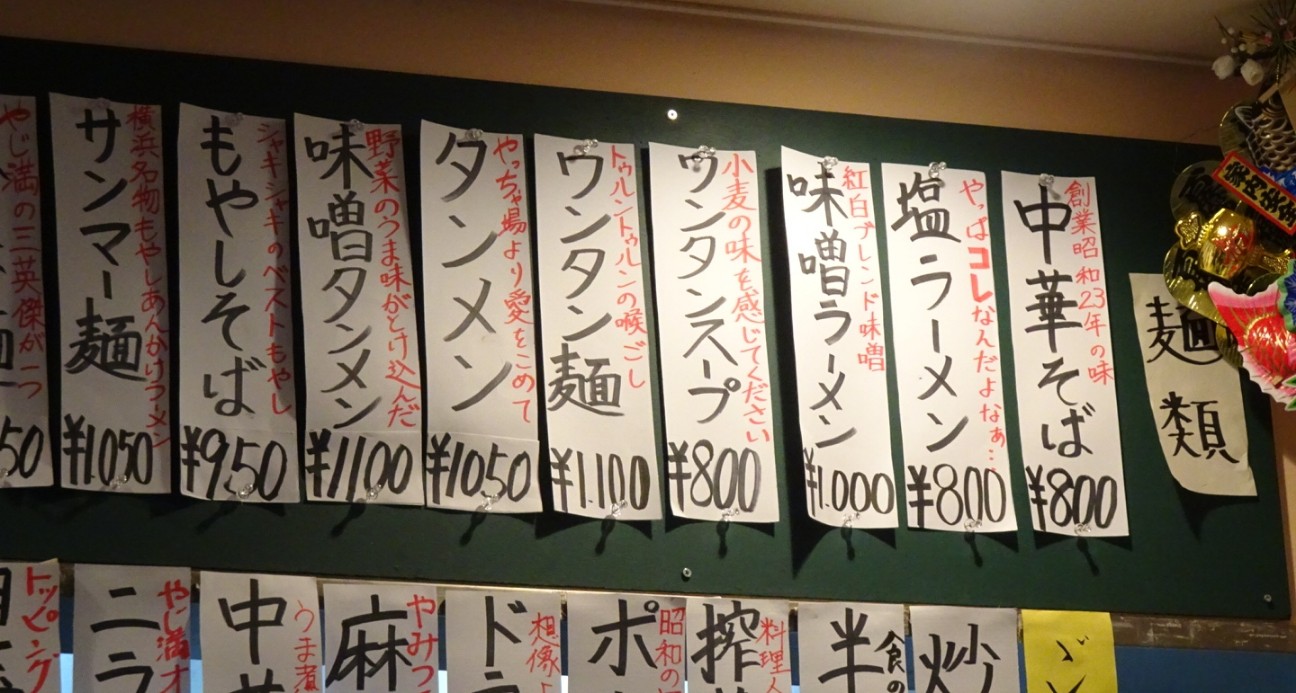 麺類
創業昭和23年の味
中華そば
¥800
やっぱコレなんだよなぁ…
塩ラーメン
¥800
紅白ブレンド味噌
味噌ラーメン
¥1.000
小麦の味を感じてください
ワンタンスープ
¥800
トゥルントゥルンの喉ごし
ワンタン麺
¥1.100
やっちゃ場より愛をこめて
タンメン
¥1050
野菜のうま味がとけ込んだ
味噌タンメン
¥1100
シャキシャキのベストもやし
もやしそば
¥950
横浜名物もやしあんかけラーメン
サンマー麺
¥1.050
やじ満の三英傑が一つ
50
炒
食の
半
料理人
搾
昭和の
ポ
想像
ド
やみつ
麻
うま煮
中
やじ満オ
ニラ
トッピング